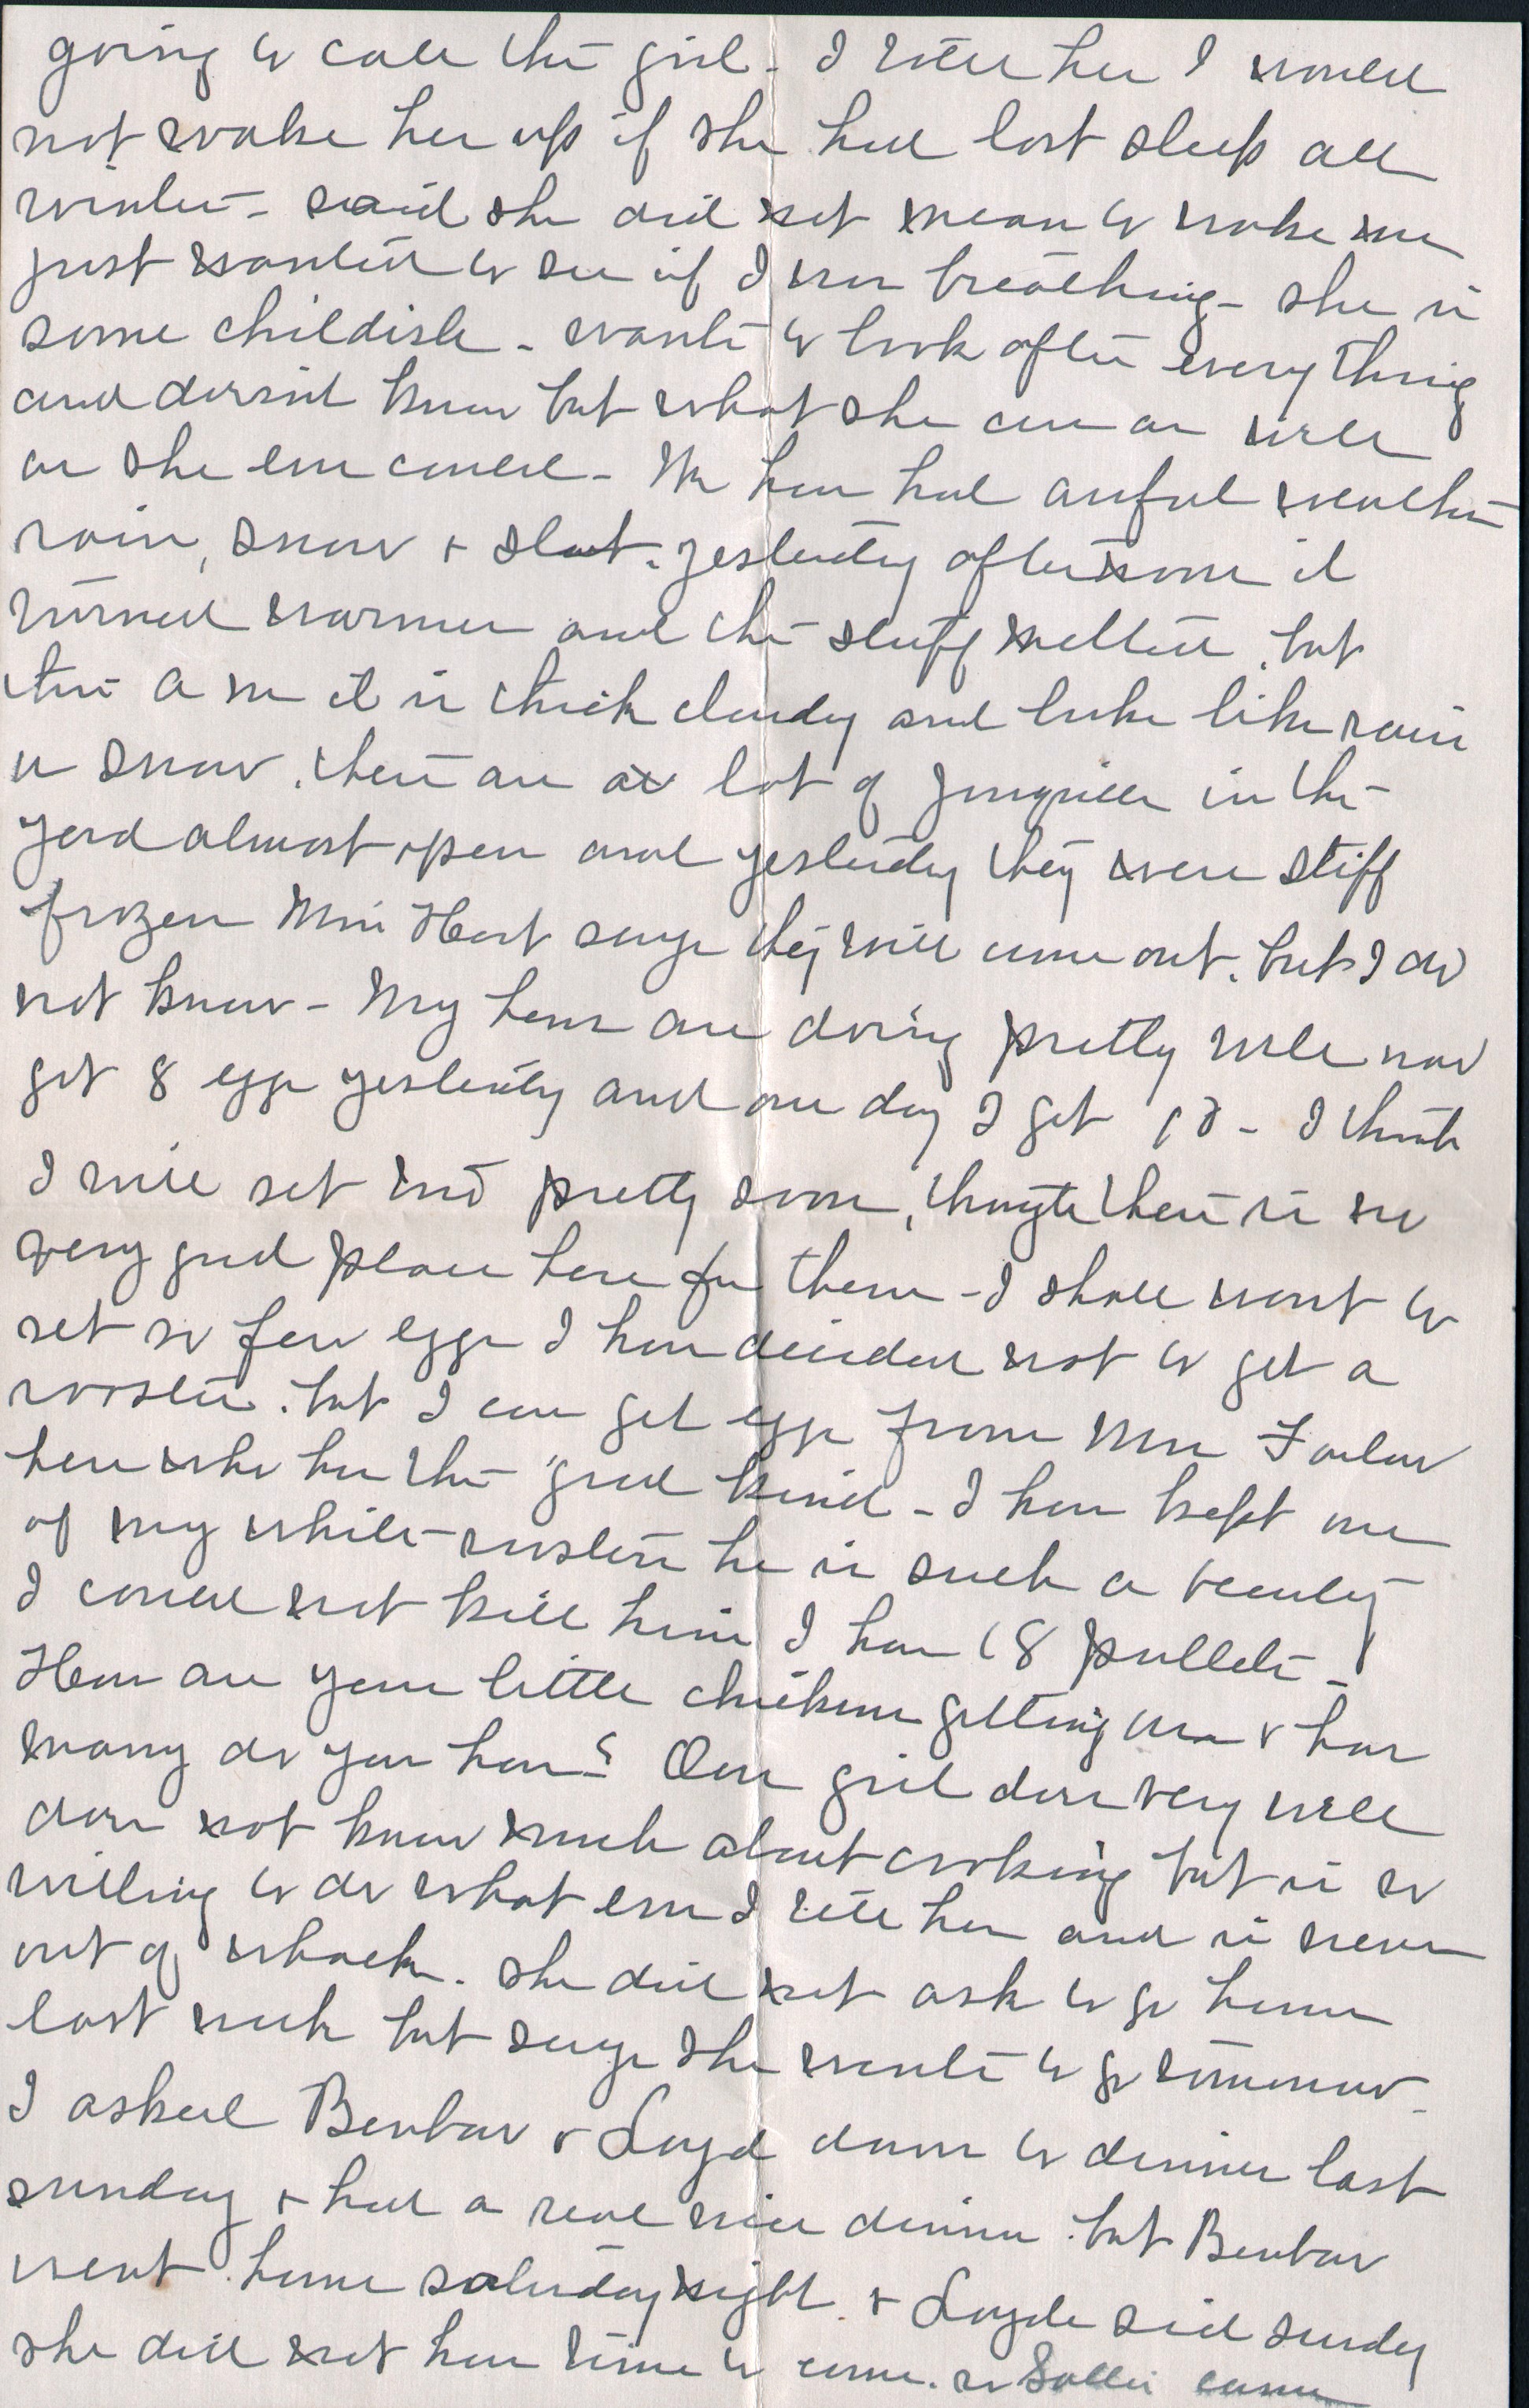 going to call the girl - I told her I would
not wake her up if she had lost sleep all
winter - said she did not mean to wake me
just wanted to see if I was breathing - she is
some childish - wants to look after everything
and doesnt know but what she can as well
as she ever could - We have had awful weather
rain, snow + sleet. yesterday afternoon it
turned warmer and the stuff melted, but
this a m it is thick cloudy and looks like rain
or snow. there are a lot of jonquills in the
yard almost open and yesterday they were stiff
frozen Miss Hart says they will come out. but I do
not know - My hens are doing pretty well now
got 8 eggs yesterday and one day I got 12 - I think
I will set two pretty soon, though there is no
very good place here for them - I shall want to
set so few eggs I have decided not to get a
rooster. but I can get eggs from Mrs
here who has the good kind - I have kept one
of my white roosters he is such a beauty
I could not kill him I have 18 pullets -
How are your little chickens getting on + how
many do you have? Our girl does very well
does not know much about cooking but is so
willing to do what ever I tell her and is never
out of whack. she did not ask to go home
last week but says she wants to go tomorrow -
I asked Benbow + Loyd down to dinner last
sunday + had a real nice dinner. but Benbow
went home saturday night. + Loyde said sunday
she did not have time to come. so Sallie came